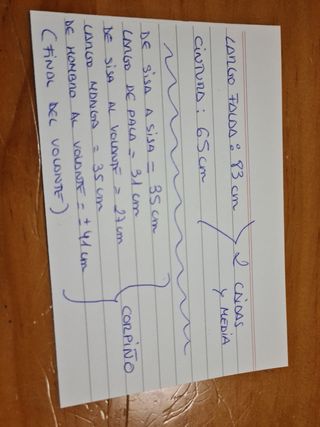 LARGO FALDA: 83 cm
2 CAIDAS
Y MEDIA
CINTURA: 65 cm
DE SISA A SISA = 35 cm
LARGO DE PALA = 31 cm
DE SISA AL VOLANTE = 27 cm
LARGO MANGA = 35 cm
DE HOMBRO AL VOLANTE = ± 41 cm
(FINAL DEL VOLANTE)
CORPIÑO